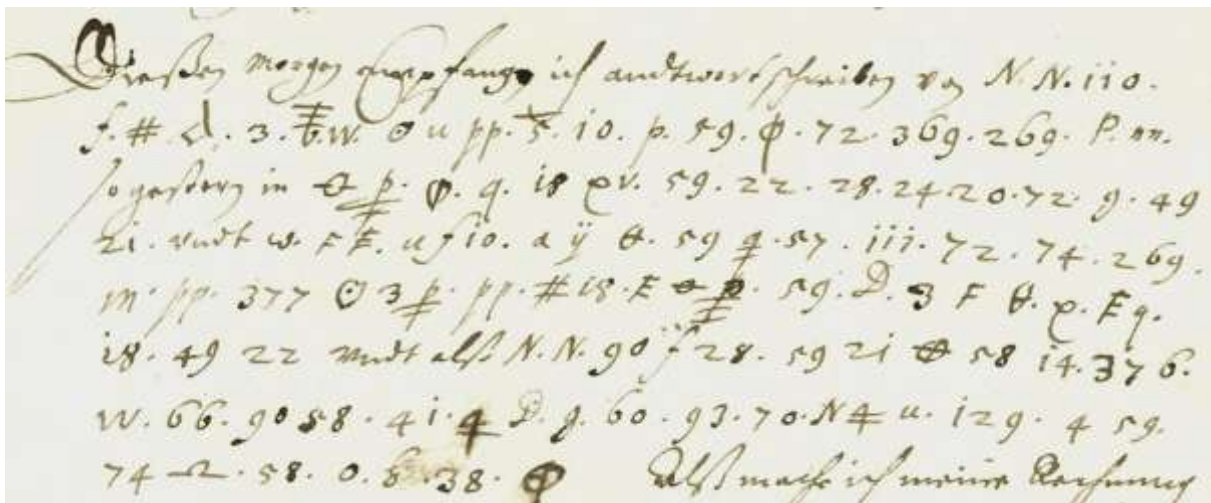 Dießen morgen Empfange ich andtwort schreiben von N. N. 110.
f. # d. 3. w. O u pp. 5. 10. p. 59. ϕ. 72. 369. 269. P. nn.
so gestern in p. φ. q. 18 pv. 59. 22. 28. 24. 20. 72. 9. 49
21. vndt w. F F. u f 10. a ÿ 59 q. 57. iii. 72. 74. 269.
m. pp. 377 ʘ 3 p. pp. # 18. E p. 59. D. 3 F p. F q.
18. 49 22 vndt alß N. N. 90 f 28. 59 21 58 14. 376.
W. 66. 90 58. 41. 4 D. g. 60. 93. 70. N 4 u. 129. 4 59.
74 58. 0. 38. ϕ Alß mache ich meine Rechnung